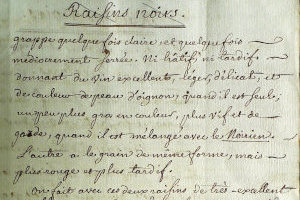 Raisins noirs.
grappe quelque fois claire et quelque fois
médiocrement serrée. Ni hatif, ni tardif.
donnant du vin excellent, leger, délicat, et
de couleur de peau d'oignon, quand il est seul,
un peu plus gras en couleur, plus vif et de
garde, quand il est mélangé avec le Noirien.
L'autre a le grain de meme forme, mais
plus rouge et plus tardif.
On fait avec ces deux raisins de très-excellent